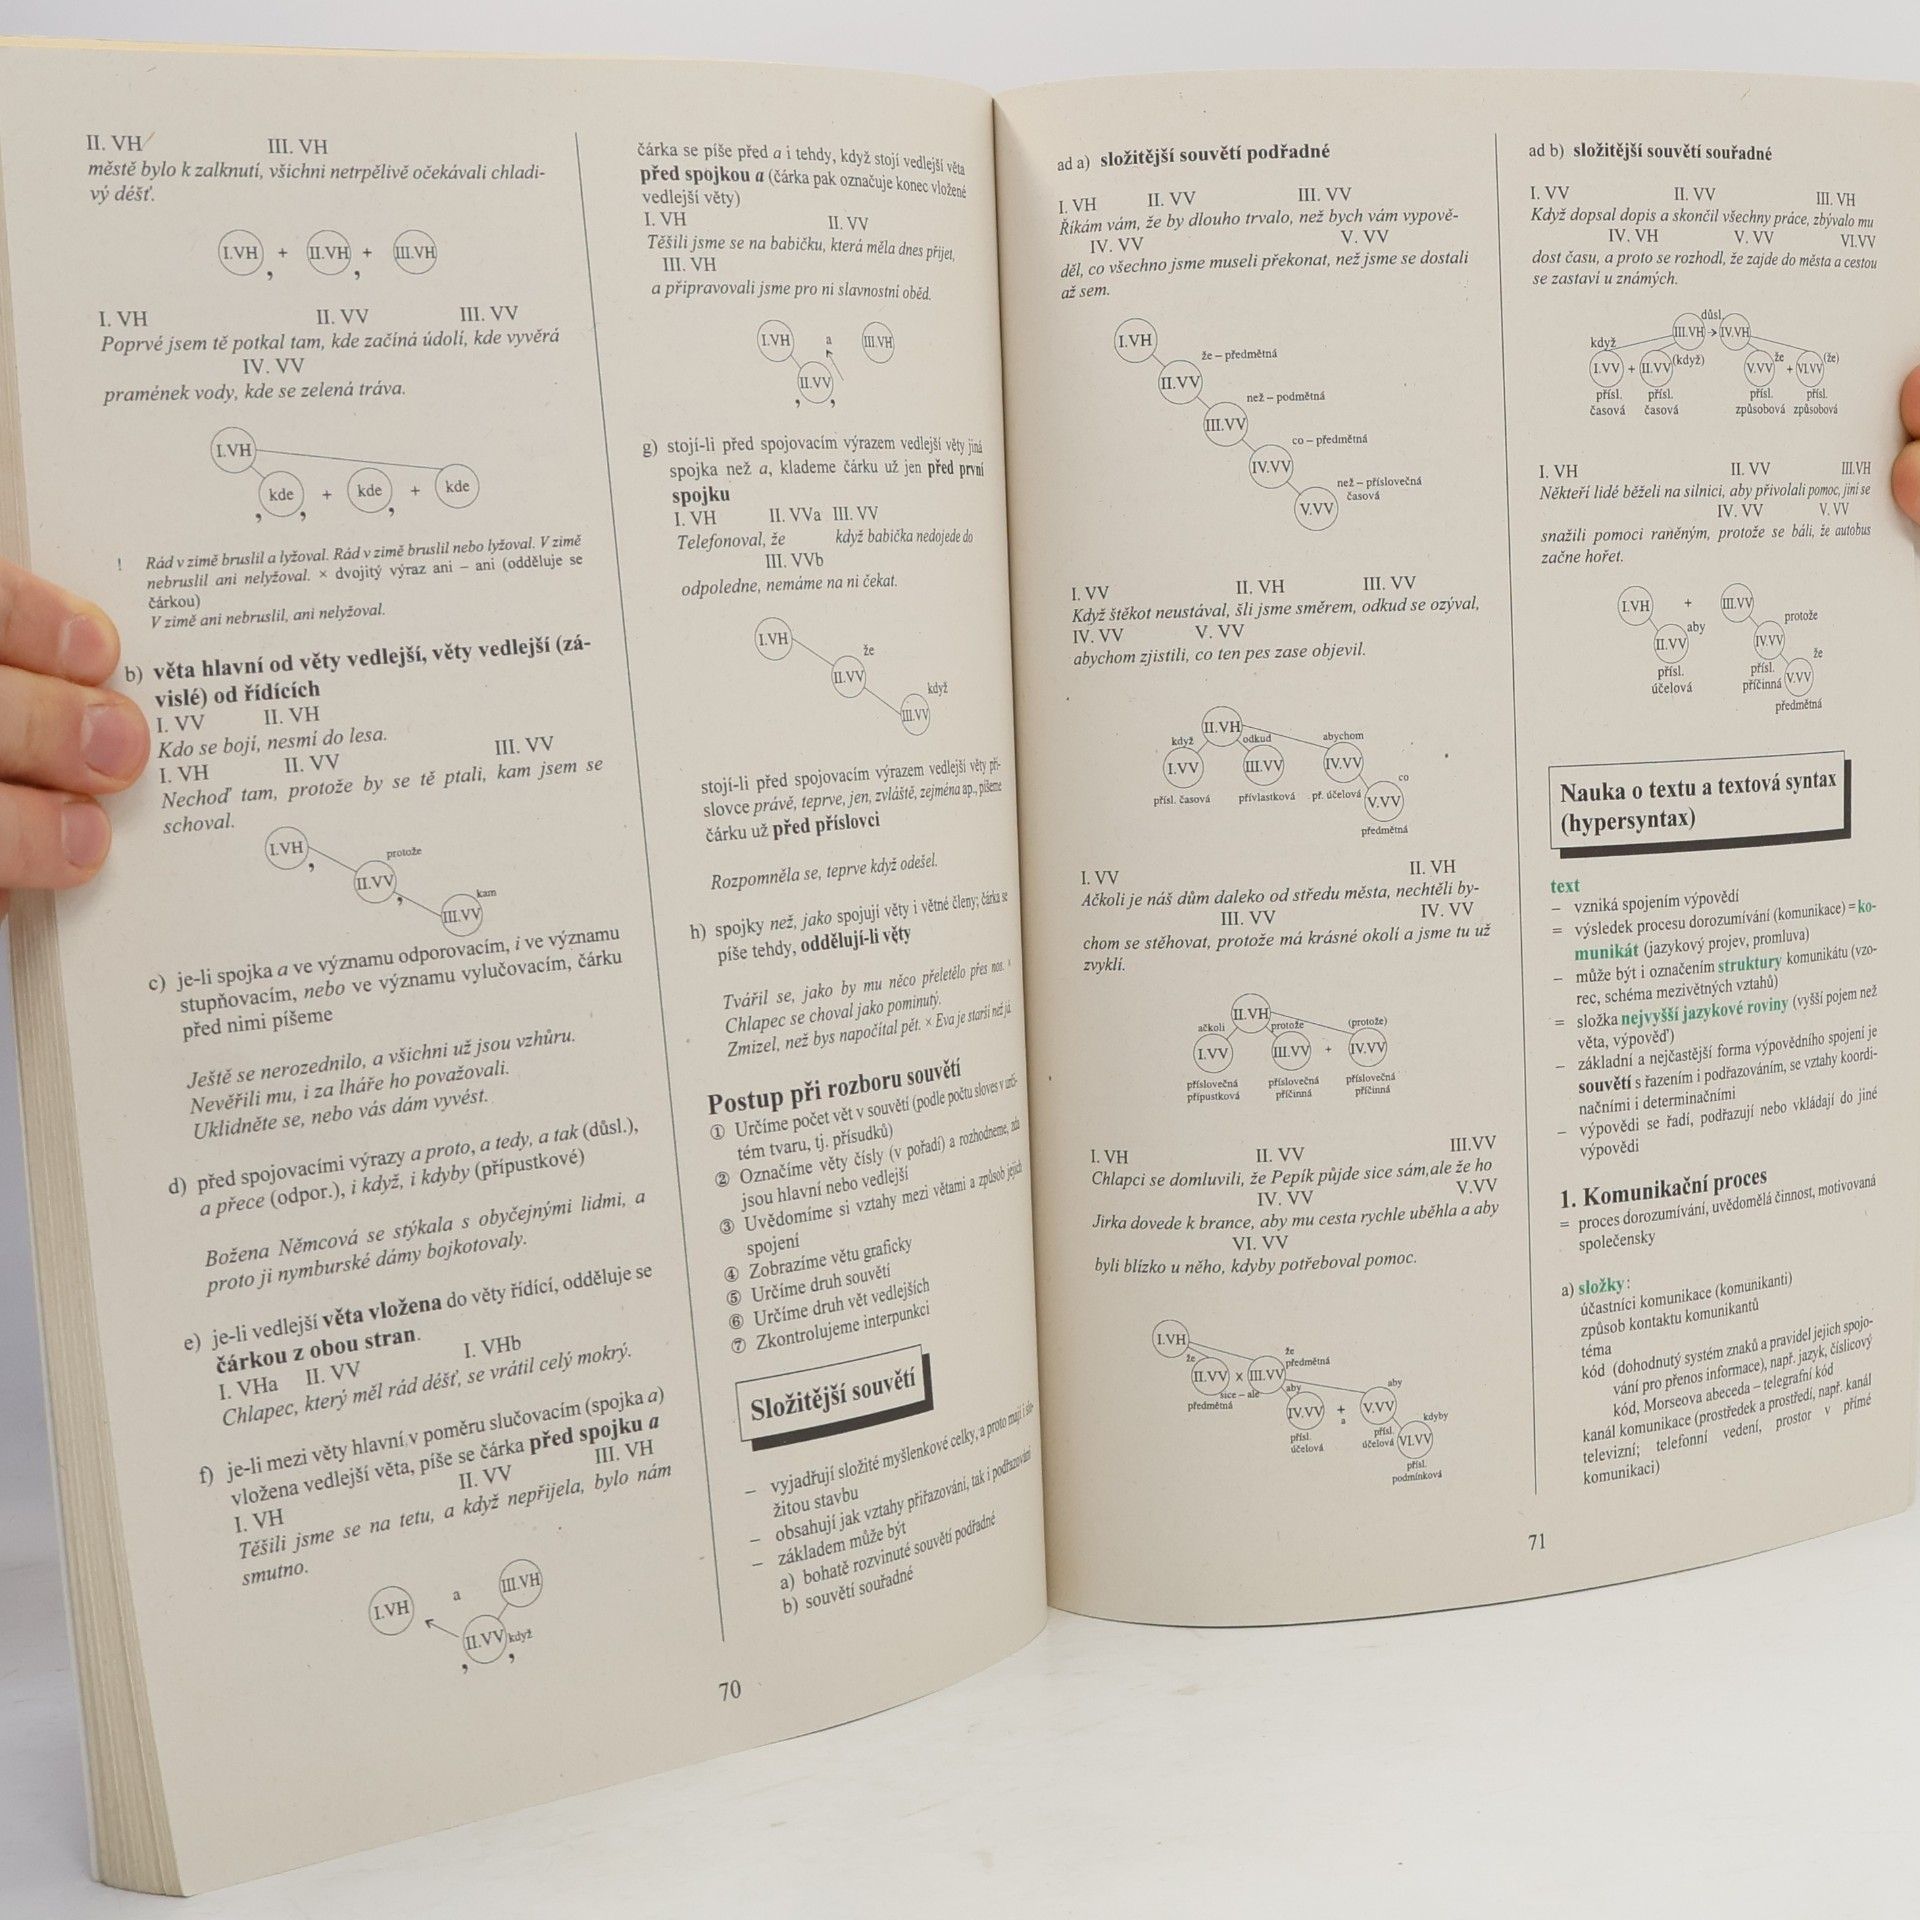 II. VH III. VH
městě bylo k zalknutí, všichni netrpělivě očekávali chladi-
vý déšť.
I.VH , + II.VH , + III.VH
I. VH II. VV III. VV
Poprvé jsem tě potkal tam, kde začíná údolí, kde vyvěrá
IV. VV
pramének vody, kde se zelená tráva.
I.VH
kde , + kde , + kde
! Rád v zimě bruslil a lyžoval. Rád v zimě bruslil nebo lyžoval. V zimě
nebruslil ani nelyžoval. × dvojitý výraz ani – ani (odděluje se
čárkou)
V zimě ani nebruslil, ani nelyžoval.
b) věta hlavní od věty vedlejší, věty vedlejší (zá-
vislé) od řídících
I. VV II. VH
Kdo se bojí, nesmí do lesa.
I. VH II. VV III. VV
Nechoď tam, protože by se tě ptali, kam jsem se
schoval.
I.VH ,
protože
II.VV ,
kam
III.VV
c) je-li spojka a ve významu odporovacím, i ve významu
stupňovacím, nebo ve významu vylučovacím, čárku
před nimi píšeme
Ještě se nerozednilo, a všichni už jsou vzhůru.
Nevěřili mu, i za lháře ho považovali.
Uklidněte se, nebo vás dám vyvést.
d) před spojovacími výrazy a proto, a tedy, a tak (důsl.),
a přece (odpor.), i když, i kdyby (přípustkové)
Božena Němcová se stýkala s obyčejnými lidmi, a
proto ji nymburské dámy bojkotovaly.
e) je-li vedlejší věta vložena do věty řídící, odděluje se
čárkou z obou stran.
I. VHa II. VV I. VHb
Chlapec, který měl rád déšť, se vrátil celý mokrý.
f) je-li mezi věty hlavní v poměru slučovacím (spojka a)
vložena vedlejší věta, píše se čárka před spojku a
I. VH II. VV III. VH
Těšili jsme se na tetu, a když nepřijela, bylo nám
smutno.
I.VH a III.VH
II.VV když
, ,
čárka se píše před a i tehdy, když stojí vedlejší věta
před spojkou a (čárka pak označuje konec vložené
vedlejší věty)
I. VH II. VV
Těšili jsme se na babičku, která měla dnes přijet,
III. VH
a připravovali jsme pro ni slavnostní oběd.
I.VH a III.VH
II.VV
, ,
g) stojí-li před spojovacím výrazem vedlejší věty jiná
spojka než a, klademe čárku už jen před první
spojku
I. VH II. VVa III. VV
Telefonoval, že když babička nedojede do
III. VVb
odpoledne, nemáme na ni čekat.
I.VH
že
II.VV
když
III.VV
stojí-li před spojovacím výrazem vedlejší věty pří-
slovce právě, teprve, jen, zvláště, zejména ap., píšeme
čárku už před příslovci
Rozpomněla se, teprve když odešel.
h) spojky než, jako spojují věty i větné členy; čárka se
píše tehdy, oddělují-li věty
Tvářil se, jako by mu něco přeletělo přes nos.
Chlapec se choval jako pominutý.
Zmizel, než bys napočítal pět. × Eva je starší než já.
Postup při rozboru souvětí
① Určíme počet vět v souvětí (podle počtu sloves v urči-
tém tvaru, tj. přísudků)
② Označíme věty čísly (v pořadí) a rozhodneme, zda
jsou hlavní nebo vedlejší
③ Uvědomíme si vztahy mezi větami a způsob jejich
spojení
④ Zobrazíme větu graficky
⑤ Určíme druh souvětí
⑥ Určíme druh vět vedlejších
⑦ Zkontrolujeme interpunkci
Složitější souvětí
– vyjadřují složité myšlenkové celky, a proto mají i slo-
žitou stavbu
– obsahují jak vztahy přiřazování, tak i podřazování
– základem může být
a) bohatě rozvinuté souvětí podřadné
b) souvětí souřadné
70
ad a) složitější souvětí podřadné
I. VH II. VV III. VV
Říkám vám, že by dlouho trvalo, než bych vám vypově-
IV. VV V. VV
děl, co všechno jsme museli překonat, než jsme se dostali
až sem.
I.VH
že – předmětná
II.VV
než – podmětná
III.VV
co – předmětná
IV.VV
než – příslovečná
časová
V.VV
I. VV II. VH III. VV
Když štěkot neustával, šli jsme směrem, odkud se ozýval,
IV. VV V. VV
abychom zjistili, co ten pes zase objevil.
II.VH
když odkud abychom
I.VV III.VV IV.VV
co
přísl. časová přívlastková př. účelová V.VV
předmětná
I. VV II. VH
Ačkoli je náš dům daleko od středu města, nechtěli by-
III. VV IV. VV
chom se stěhovat, protože má krásné okolí a jsme tu už
zvyklí.
II.VH
ačkoli protože (protože)
I.VV III.VV + IV.VV
příslovečná příslovečná příslovečná
přípustková příčinná příčinná
I. VH II. VV III.VV
Chlapci se domluvili, že Pepík půjde sice sám,ale že ho
IV. VV V.VV
Jirka dovede k brance, aby mu cesta rychle uběhla a aby
VI. VV
byli blízko u něho, kdyby potřeboval pomoc.
I.VH
že že
předmětná
II.VV x III.VV
sice – ale aby aby
předmětná IV.VV + V.VV
a kdyby
přísl. přísl.
účelová účelová VI.VV
přísl.
podmínková
ad b) složitější souvětí souřadné
I. VV II. VV III. VH
Když dopsal dopis a skončil všechny práce, zbývalo mu
IV. VH V. VV VI.VV
dost času, a proto se rozhodl, že zajde do města a cestou
se zastaví u známých.
důsl.
III.VH > IV.VH
když (když) že (že)
I.VV + II.VV V.VV + VI.VV
přísl. přísl. přísl. přísl.
časová časová způsobová způsobová
I. VH II. VV III.VH
Někteří lidé běželi na silnici, aby přivolali pomoc, jiní se
IV. VV V. VV
snažili pomoci raněným, protože se báli, že autobus
začne hořet.
I.VH + III.VV
aby protože
II.VV IV.VV
že
přísl. přísl.
účelová příčinná V.VV
předmětná
Nauka o textu a textová syntax
(hypersyntax)
text
– vzniká spojením výpovědí
= výsledek procesu dorozumívání (komunikace) = ko-
munikát (jazykový projev, promluva)
– může být i označením struktury komunikátu (vzo-
rec, schéma mezivětných vztahů)
= složka nejvyšší jazykové roviny (vyšší pojem než
věta, výpověď)
– základní a nejčastější forma výpovědního spojení je
souvětí s řazením i podřazováním, se vztahy koordi-
načními i determinačními
– výpovědi se řadí, podřazují nebo vkládají do jiné
výpovědi
1. Komunikační proces
= proces dorozumívání, uvědomělá činnost, motivovaná
společensky
a) složky:
účastníci komunikace (komunikanti)
způsob kontaktu komunikantů
téma
kód (dohodnutý systém znaků a pravidel jejich spojo-
vání pro přenos informace), např. jazyk, číslicový
kód, Morseova abeceda – telegrafní kód
kanál komunikace (prostředek a prostředí, např. kanál
televizní; telefonní vedení, prostor v přímé
komunikaci)
71